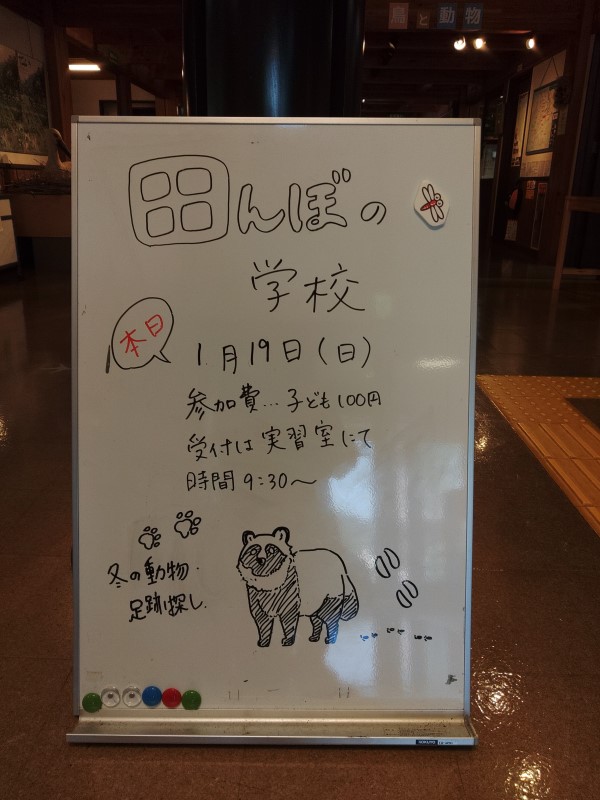 鳥と動物
田んぼの
学校
本日
1月19日(日)
参加費…子ども100円
受付は実習室にて
時間9:30〜
冬の動物・
足跡探し